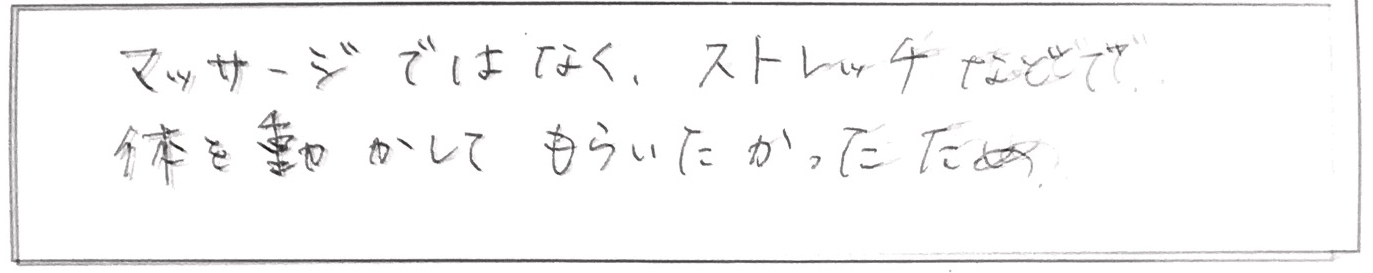 マッサージではなく、ストレッチなどで
体を動かしてもらいたかったため